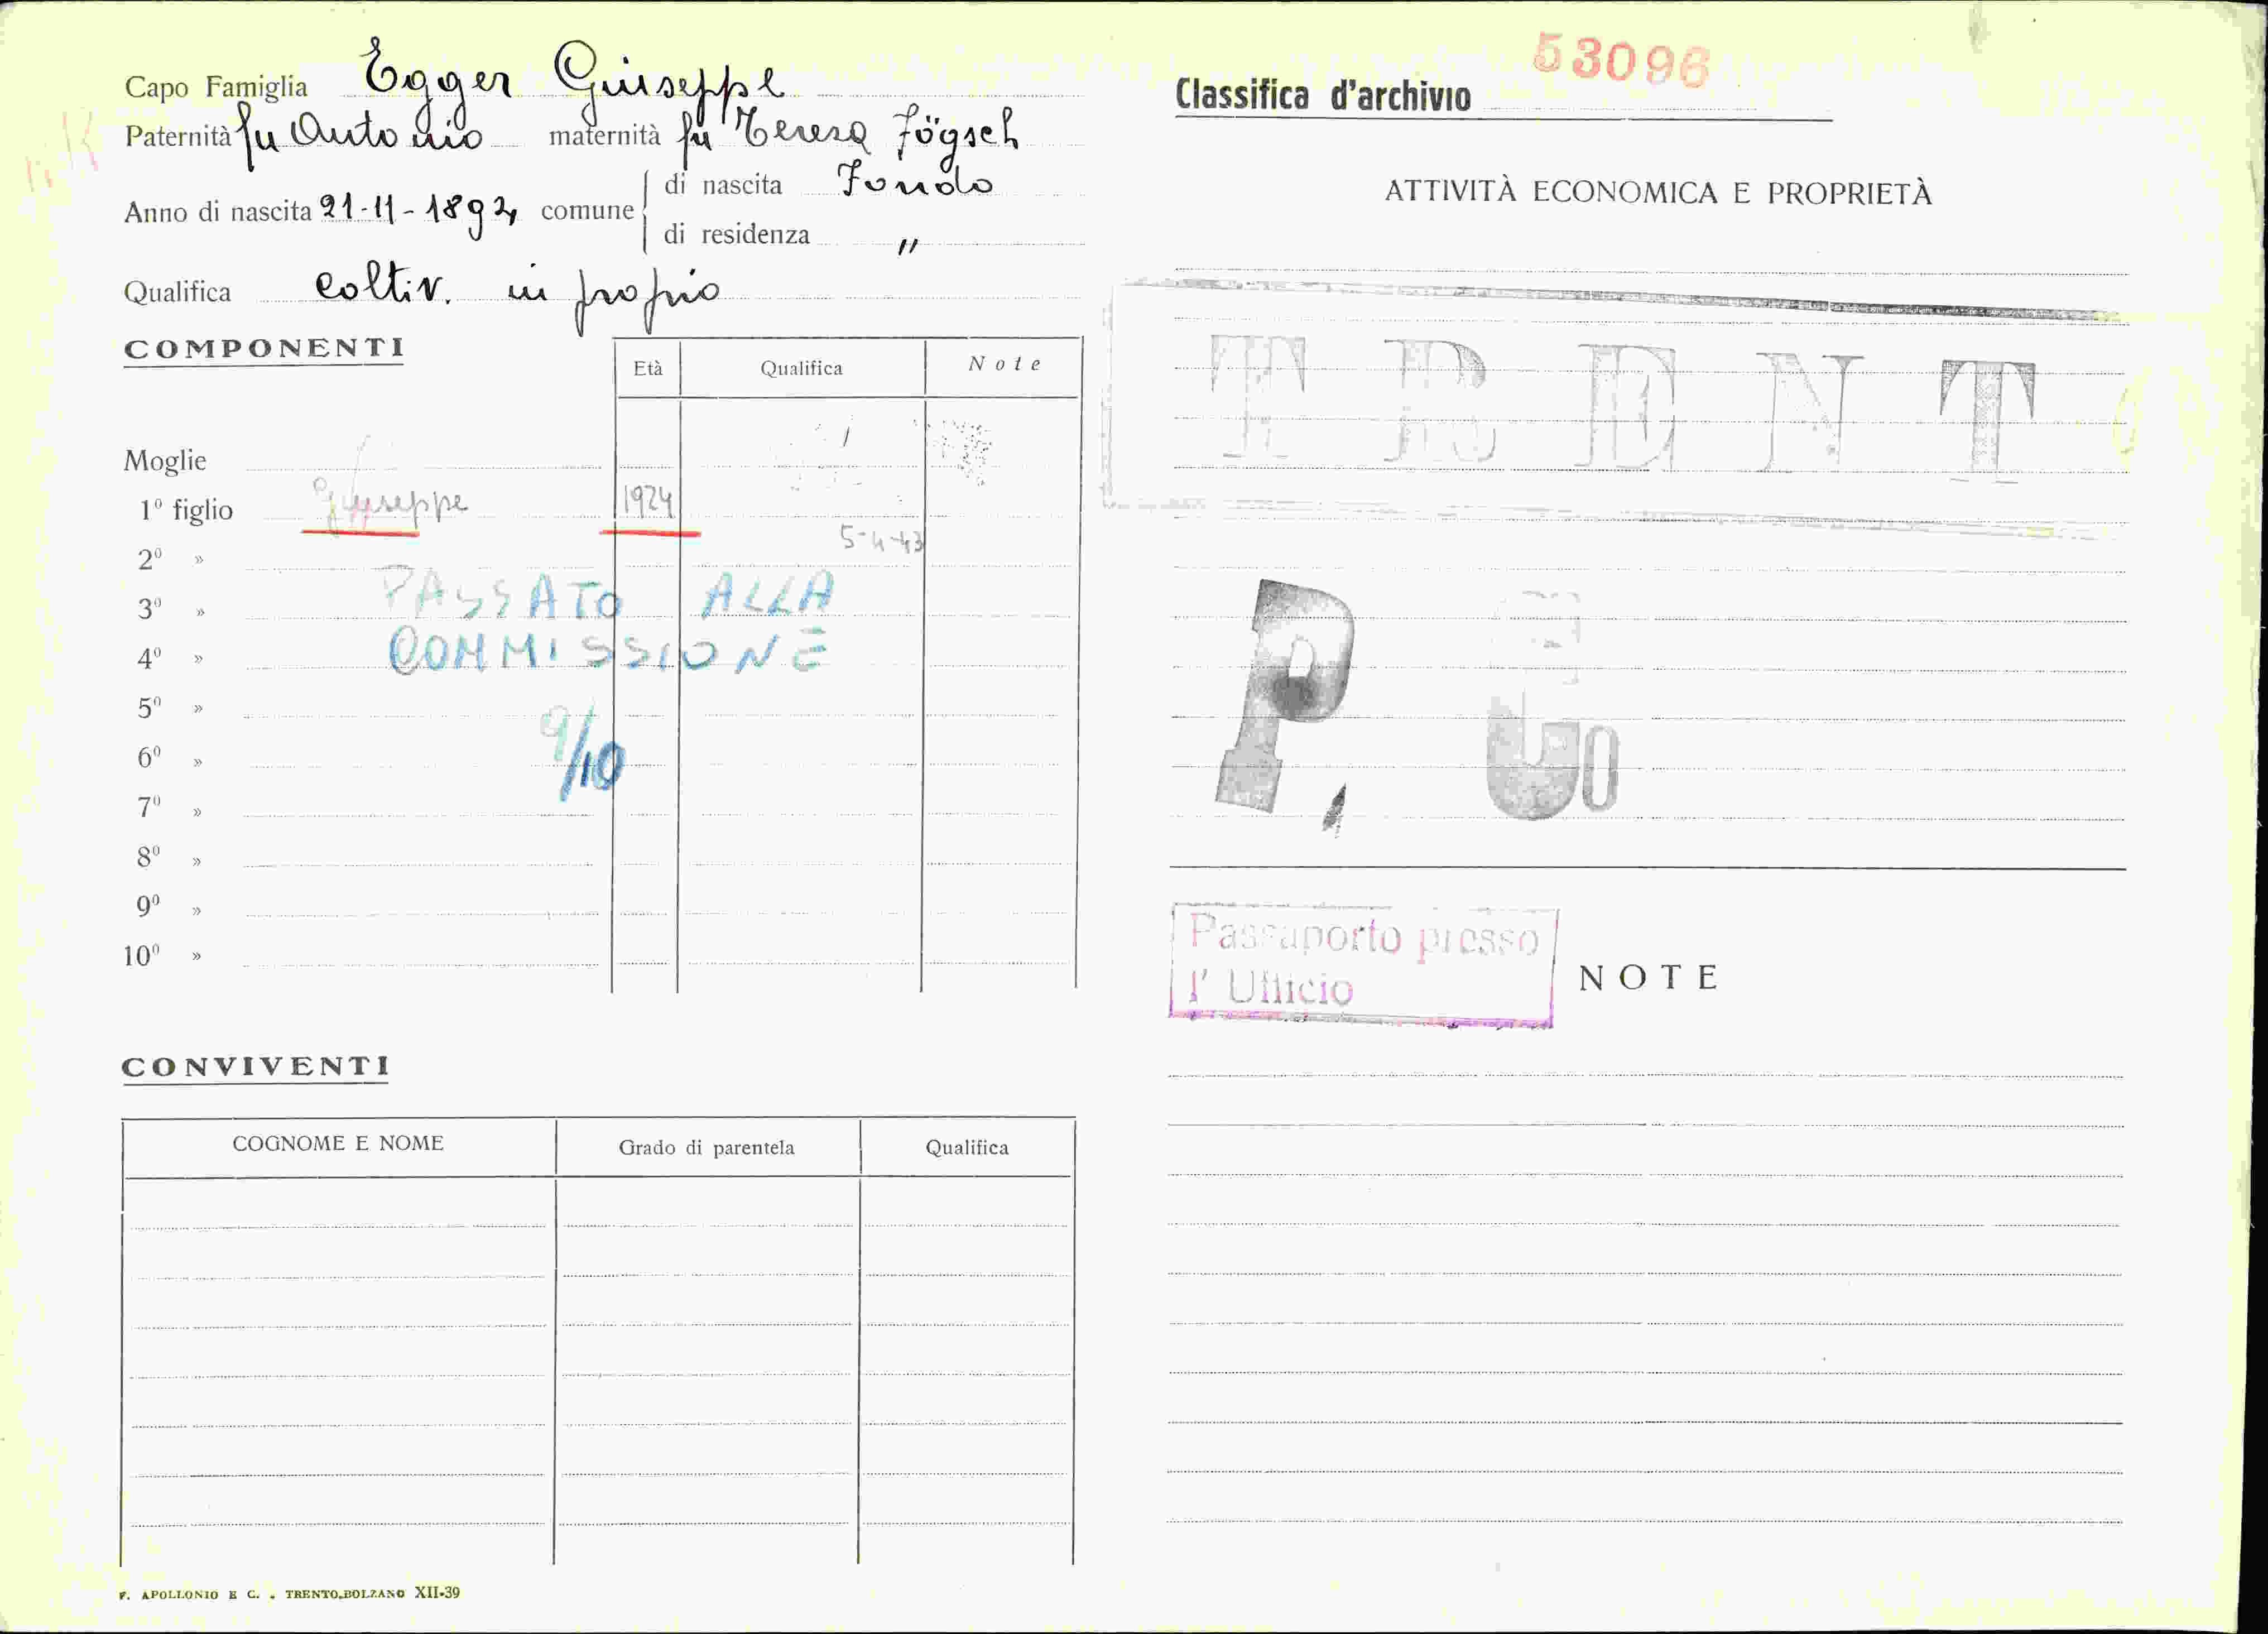 Capo Famiglia Egger Giuseppe
Paternità fu Antonio maternità fu Teresa Fögsch
Anno di nascita 21-11-1892 comune di nascita Fondo
di residenza "
Qualifica coltiv. in proprio
COMPONENTI
Età Qualifica Note
Moglie
1º figlio Giuseppe 1924
5-4-43
2º »
3º » PASSATO ALLA
4º » COMMISSIONE
5º »
9/10
6º »
7º »
8º »
9º »
10º »
CONVIVENTI
COGNOME E NOME Grado di parentela Qualifica
F. APOLLONIO E C. - TRENTO-BOLZANO XII-39
53096
Classifica d'archivio
ATTIVITÀ ECONOMICA E PROPRIETÀ
TRENTO
P.
Passaporto presso
l'Ufficio
NOTE